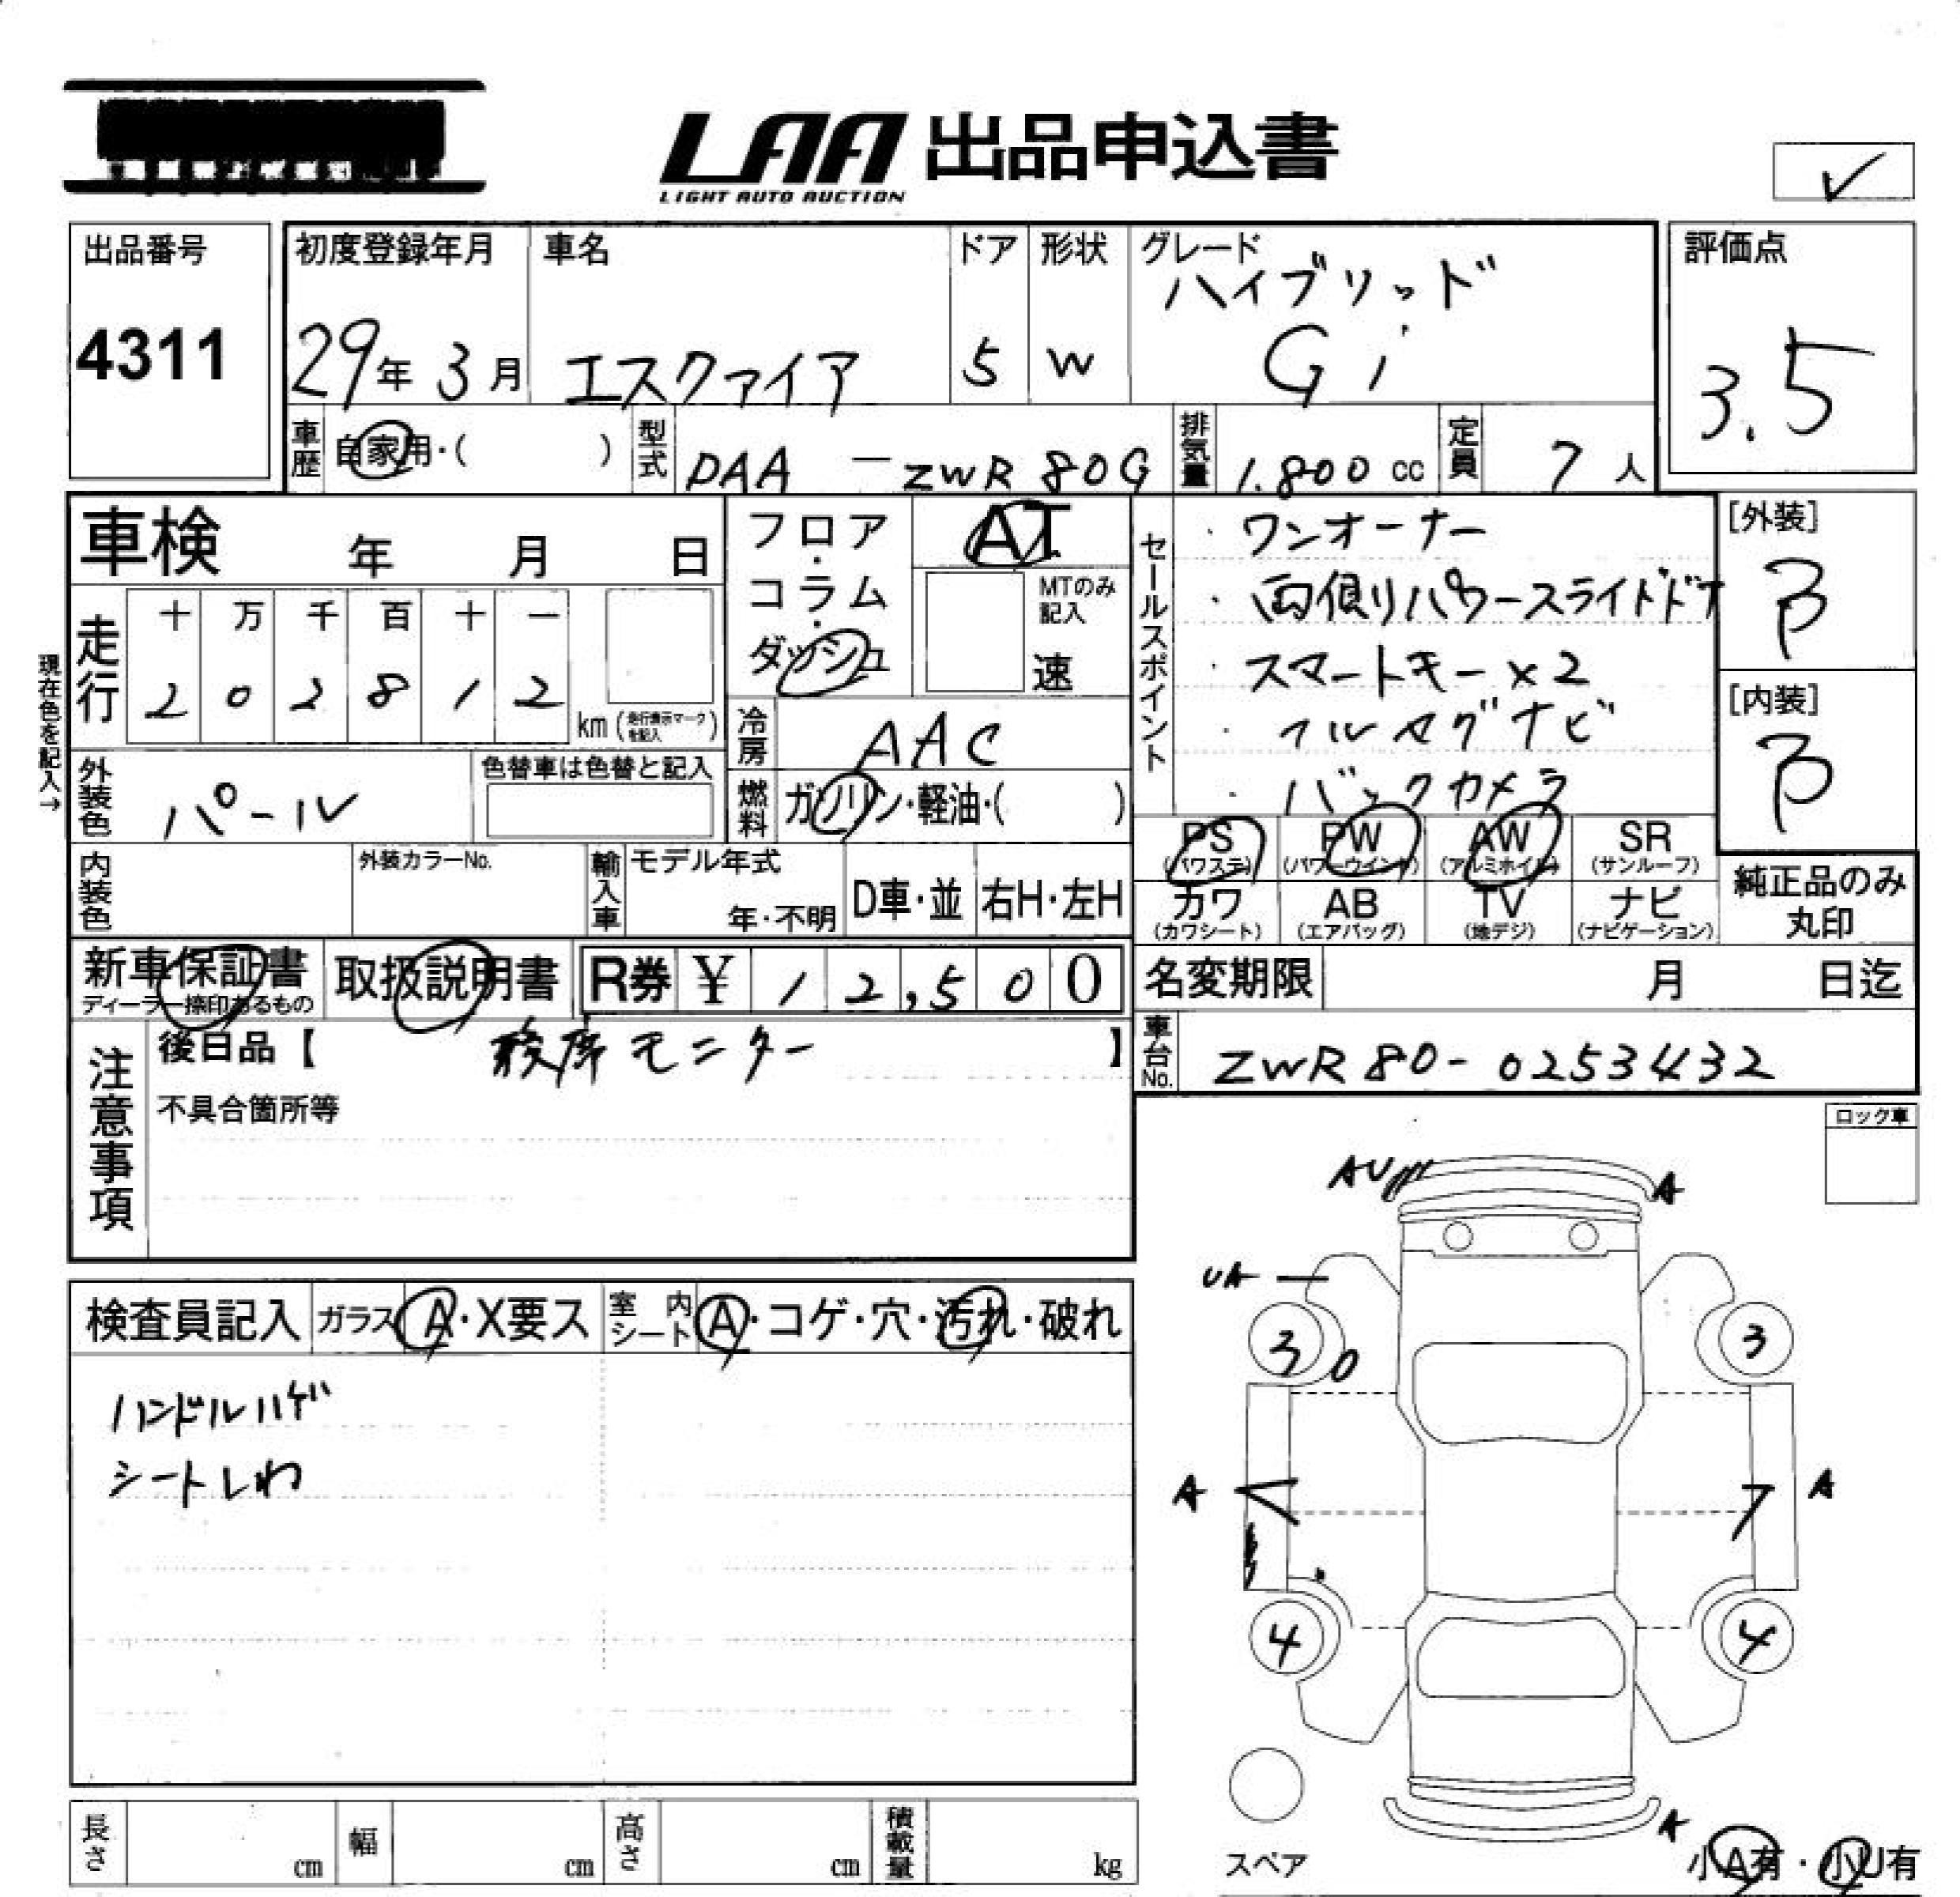 LAA 出品申込書
LIGHT AUTO AUCTION
✓
出品番号
4311
初度登録年月
29年 3月
車名
エスクァイア
ドア
5
形状
W
グレード
ハイブリッド
Gi
評価点
3.5
車歴
自家用・( )
型式
DAA - ZWR 80G
排気量
1.800 cc
定員
7 人
車検 年 月 日
現在色を記入→
走行
十 万 千 百 十 一
2 0 2 8 1 2
km (走行表示マークを記入)
フロア・コラム・ダッシュ
AT
MTのみ記入
速
冷房
AAC
燃料
ガソリン・軽油・( )
外装色
パール
色替車は色替と記入
内装色
外装カラーNo.
輸入車
モデル年式
年・不明
D車・並
右H・左H
セールスポイント
・ワンオーナー
・両側パワースライドドア
・スマートキー×2
・フルセグナビ
・バックカメラ
[外装]
B
[内装]
B
PS
(パワステ)
PW
(パワーウインド)
AW
(アルミホイル)
SR
(サンルーフ)
カワ
(カワシート)
AB
(エアバッグ)
TV
(地デジ)
ナビ
(ナビゲーション)
純正品のみ
丸印
新車保証書
ディーラー捺印あるもの
取扱説明書
R券 ¥ 12,500
名変期限 月 日迄
車台No.
ZWR 80-0253432
注意事項
後日品【 後席モニター 】
不具合箇所等
ロック車
検査員記入
ガラス A・X要ス
室内シート A・コゲ・穴・汚れ・破れ
ハンドルハゲ
シートしわ
AU
A
UA
3
3
A
A
4
4
A
スペア
小A有・小U有
長さ cm
幅 cm
高さ cm
積載量 kg